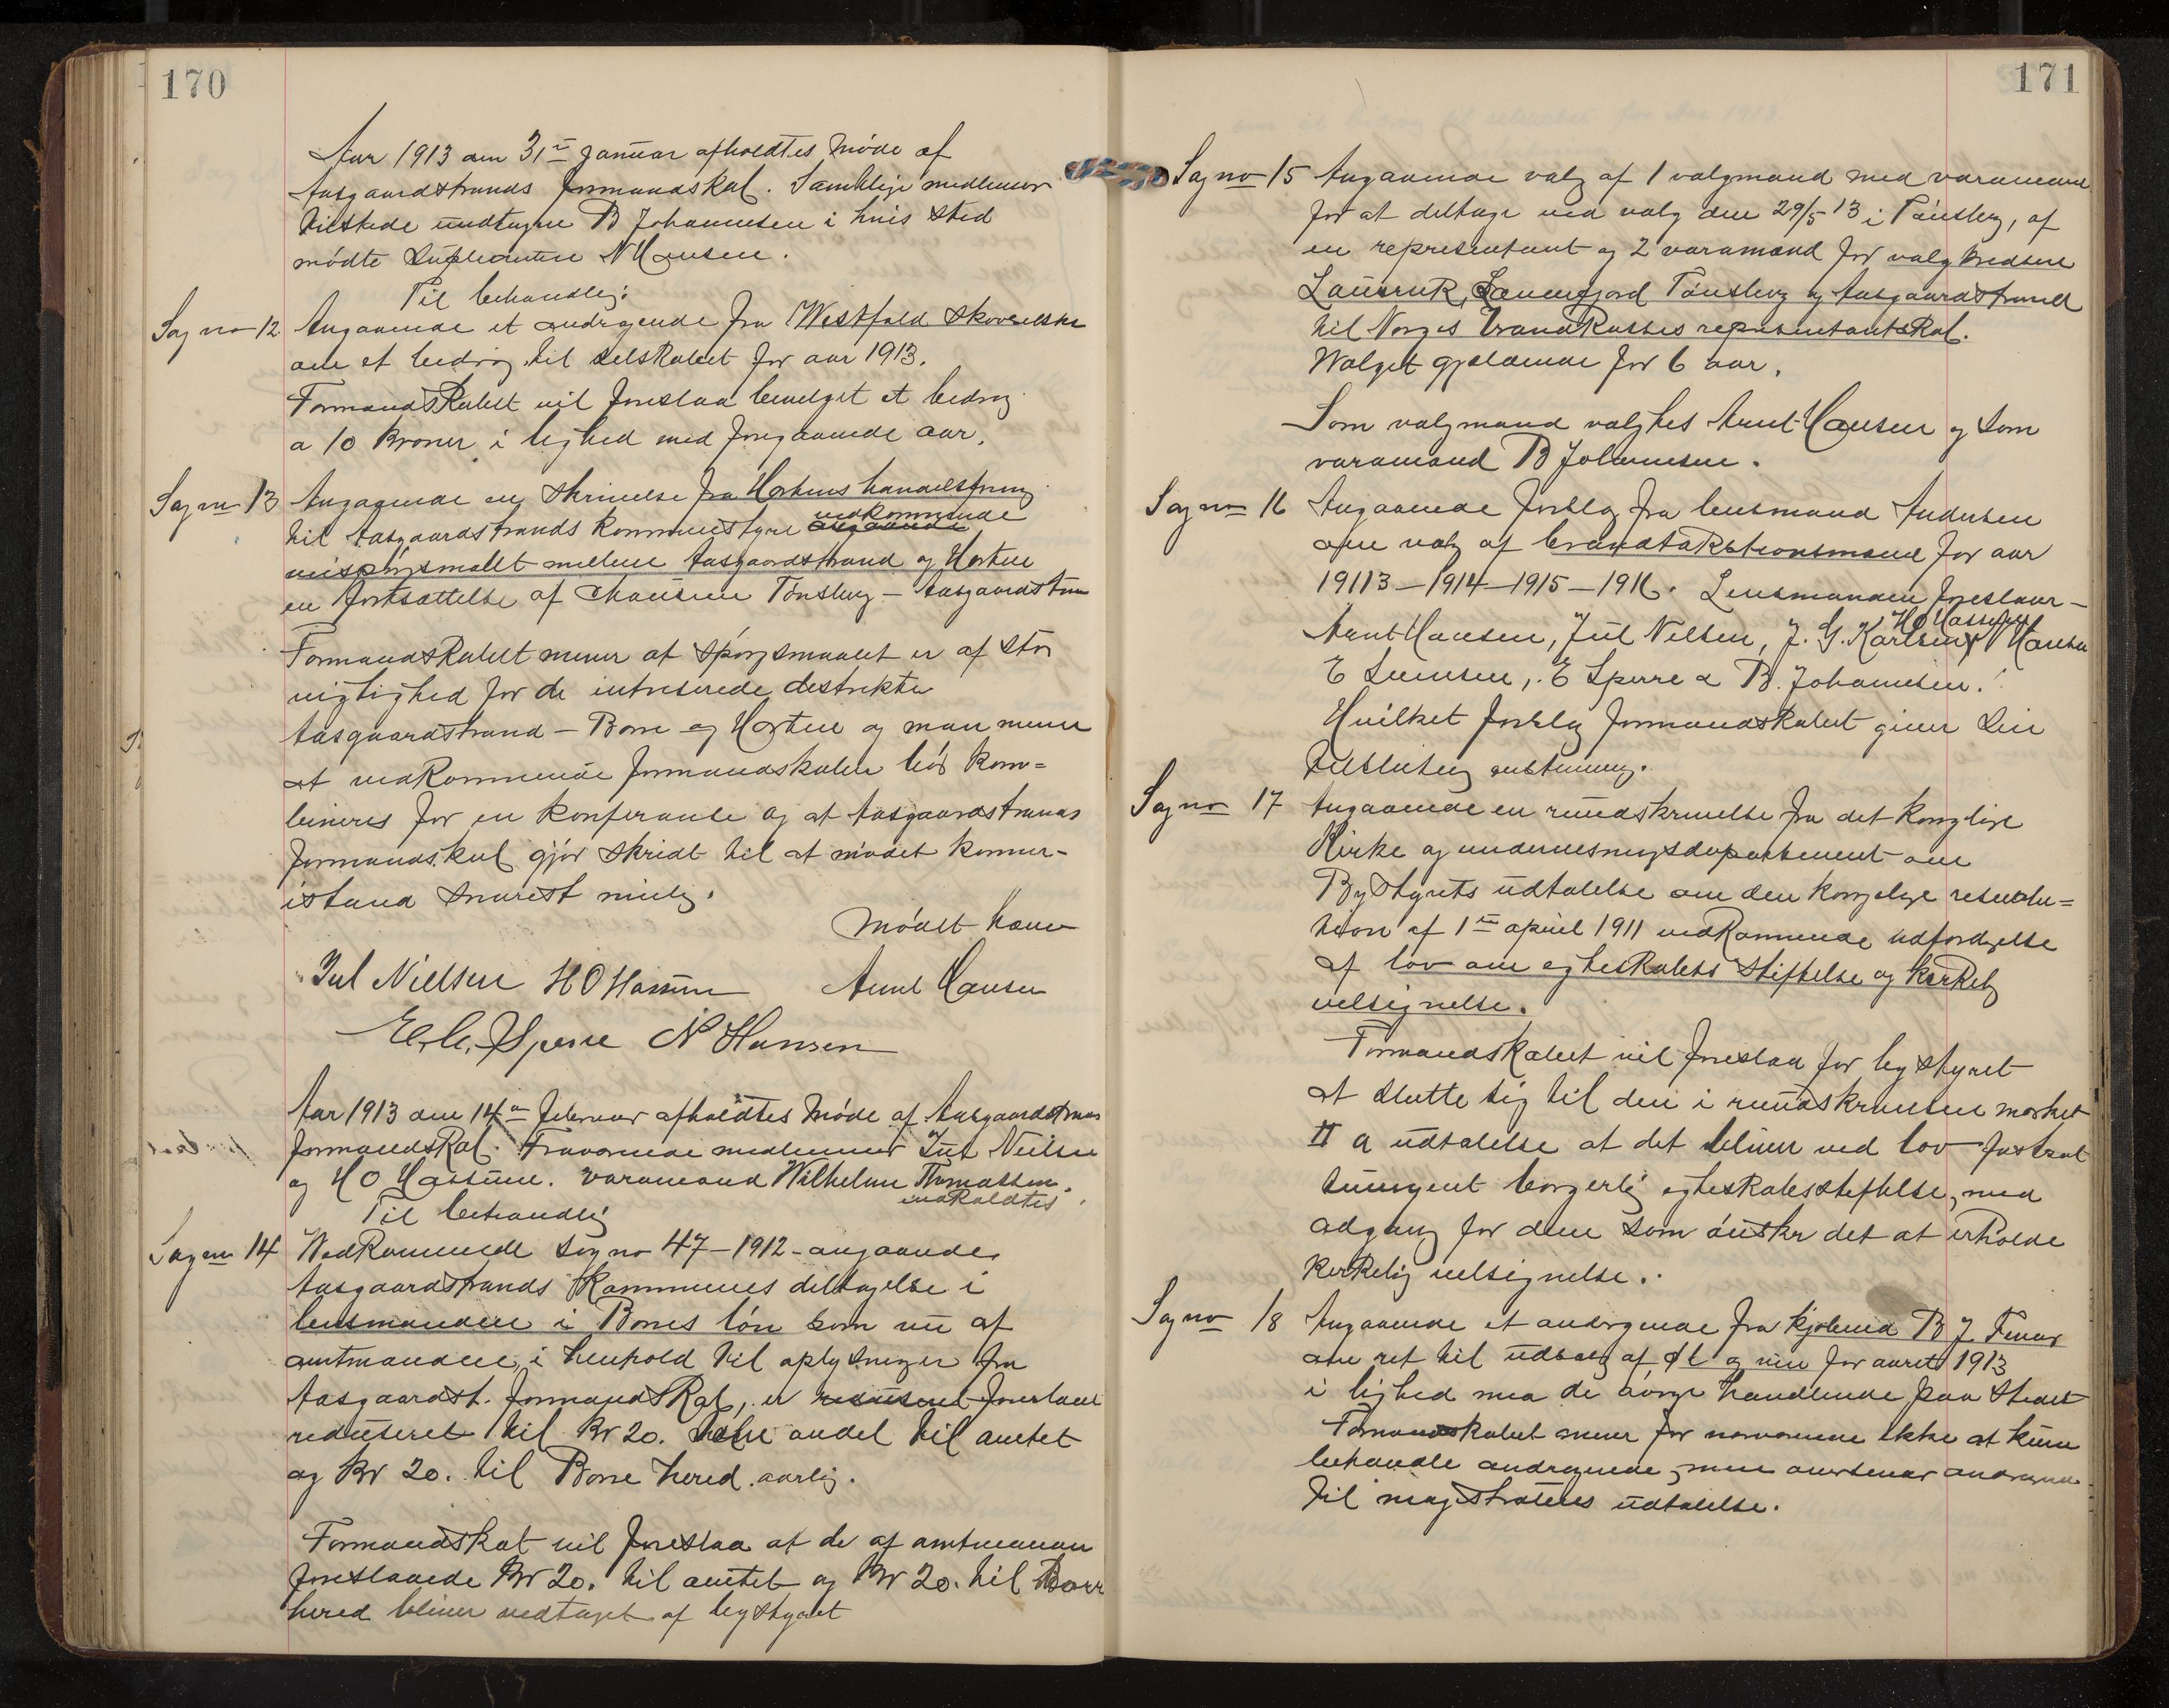 170
Aar 1913 den 31te Januar afholdtes møde af
Aasgaardstrands formandskab. Samtlige medlemmer
tilstede undtagen B Johannesen i hvis sted
mødte Supleanten N Hansen.
Til behandlig:
Sag no 12 Angaaende et andragende fra Westfold Skovselskab
om et bedrag til selskabet for aar 1913.
Formandskabet vil foreslaa bevilget et bedrag
a 10 kroner i lighed med foregaaende aar.
Sag no 13 Angaaende en skrivelse fra Hortens handelsforening
til Aasgaardstrands kommunestyre angaaende vedkommende
veispørsmallet mellem Aasgaardstrand og Horten
en fortsættelse af Chausseen Tønsberg - Aasgaardstran
Formandskabet mener at spørgsmaalet er af stor
vigtighed for de intreserede destrikter
Aasgaardstrand - Borre og Horten og man mener
at vedkommende formandskaber bør kom=
bineres for en konferanse og at Aasgaardstrands
formandskab gjør skridt til at mødet kommer
istand snarest mulig.
Mødet hævet
Jul Nielsen H O Hassum Arnt Hansen
E. C. Sperre N Hansen
Aar 1913 den 14de Februar afholdtes møde af Aasgaardstrands
formandskab. Fraværende medlemmer Jul Neilsen
og H O Hassum. Varamand Wilhelm Thomassen.
indkaldtes
Til behandlig
Sag no 14 Wedkommende sag no 47-1912 - angaaende
Aasgaardstrands Kommunes deltagelse i
lensmanden i Borres løn som nu af
amtmanden, i henhold til oplysninger fra
Aasgaardst. formandskab, er reduseret foreslaaet
reduseret til Kr 20. andel til amtet
og Kr 20. til Borre hered aarlig.
Formandskab vil foreslaa at de af amtmanden
foreslaaede Kr 20. til amtet og Kr 20. til Borre
hered bliver vedtaget af bystyret
171
Sag no 15 Angaaende valg af 1 valgmand med varamand
for at deltage ved valg den 29/5 13 i Tønsberg, af
en representant og 2 varamænd for valgkredsene
Laurvik, Sandefjord Tønsberg og Aasgaardstrand
til Norges brandkasses representantskab.
Walget gjældende for 6 aar.
Som valgmand valgtes Arnt Hansen og som
varamand B Johannesen.
Sag no 16 Angaaende forslag fra lensmand Andersen
om valg af brandtakstionsmænd for aar
19113-1914-1915-1916. Lensmanden foreslaar -
H O Hassum
Arnt Hansen, Jul Nelsen, J. G. Karlsen, N Hansen
E Sperre & B. Johannesen.
Hvilket forslag formandskabet giver sin
tilslutning enstemmig.
Sag no 17 Angaaende en rundskrivelse fra det konglige
Kirke og undervisningsdepartement om
Bystyrets udtalelse om den kongelige resolu=
tion af 1te april 1911 vedkommende udfordigelse
af lov om egteskabets stiftelse og kirkelig
velsignelse.
Formandskabet vil foreslaa for bystyret
at slutte sig til den i rundskrivelsen mærket
II a udtalelse at det bliver ved lov fastsat
tvungent borgerlig egteskabsstiftelse, med
adgang for dem som ønsker det at erholde
kirkelig velsignelse.
Sag no 18 Angaaende et andragende fra kjøbmd B J
om ret til udsalg af øl og vin for aaret 1913
i lighed med de øvrige handlende paa stedet
Formandskabet mener for nærværende ikke at kune
behandle andragende, men oversender andragende
til magistratens udtalelse.